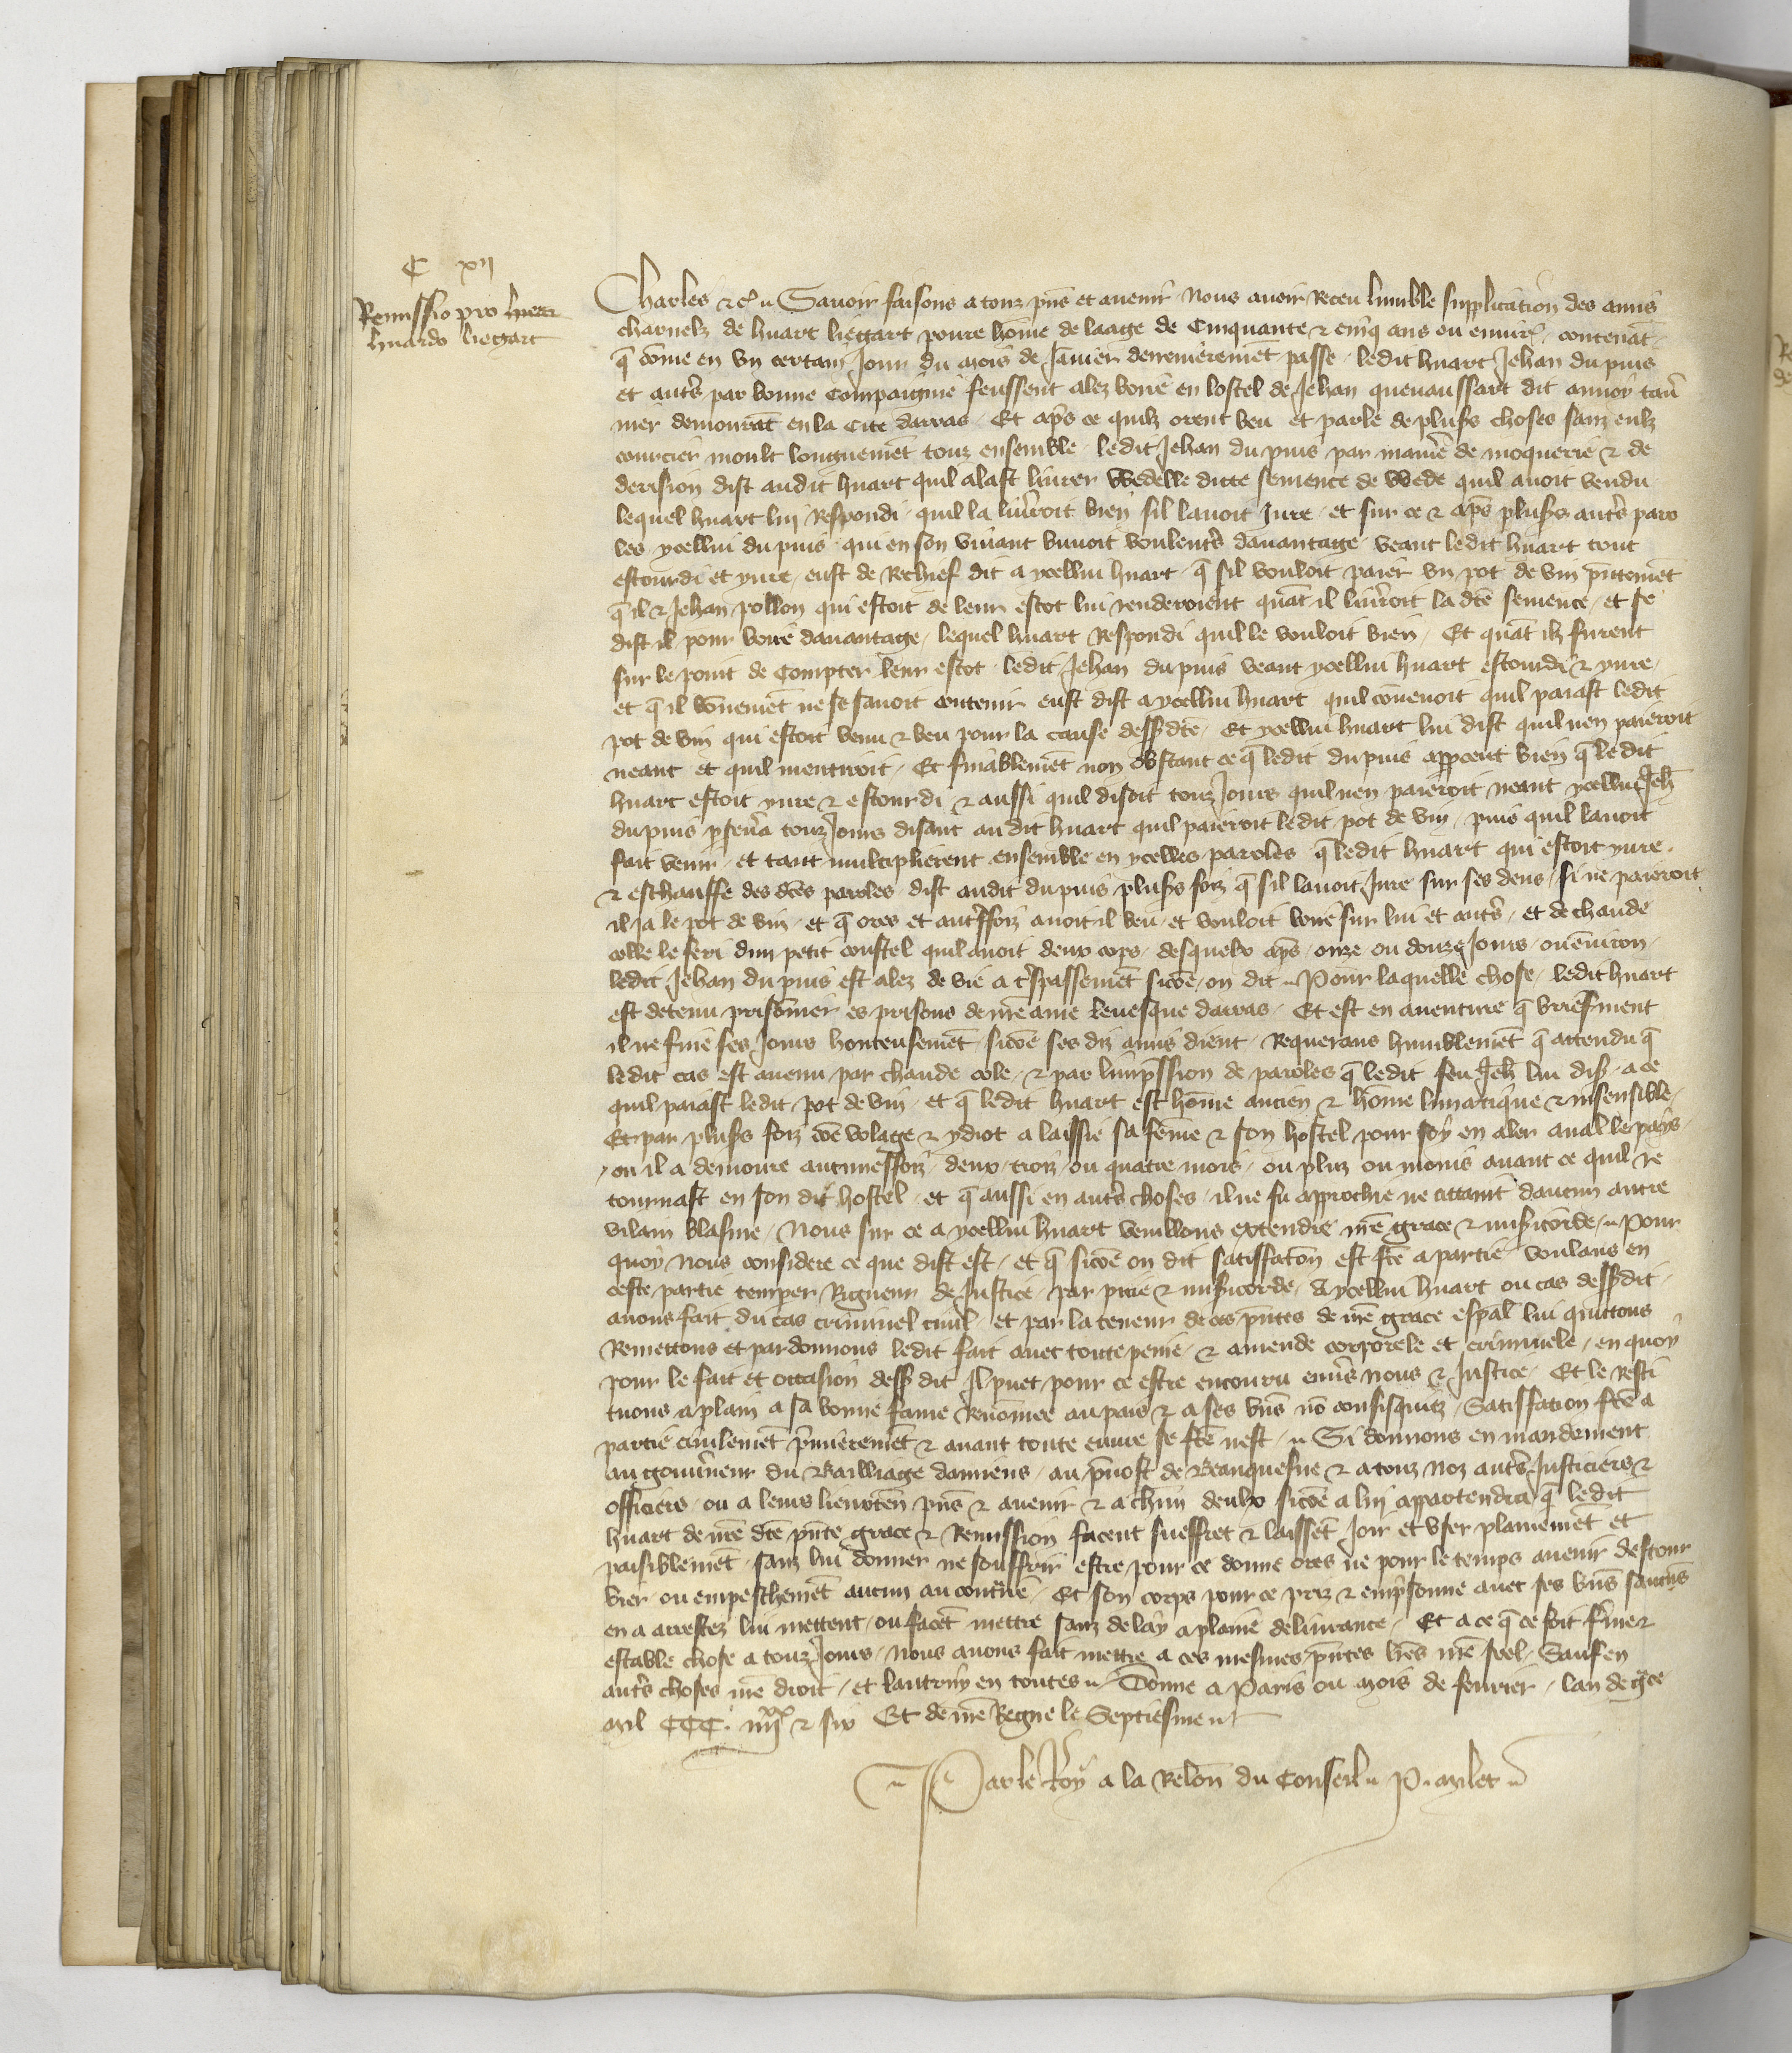 C xij
Remissio pro huar
huardo liegart
Charles &c. Sauoir faisons a touz pns et auenir Nous auoir Receu lumble supplication des amis
charnelz de huart liegart poure home de laage de Cinquante & cinq ans ou enuir contenat
q come en vn certain Jour du mois de Januier derrenierement passe ledit huart Jehan du puis
et autrs par bonne compaignie feussent alez boire en lostel de Jehan queuaussart dit annoy tauer
nier demourat en la Cite darras Et aps ce quilz orent beu et parle de plusrs choses sanz eulz
courcier moult longuemet touz ensemble ledit Jehan du puis par maniere de moquerie & de
derision dist audit huart quil alast liurer Wedelle dicte semence de Wede quil auoit vendu
lequel huart lui Respondi quil la liureroit bien sil lauoit Jure et sur ce & aps plusrs autrs paro
les ycellui du puis qui en son viuant buuoit voulentrs dauantage veant ledit huart tout
estourdi et yure eust de Rechief dit a ycellui huart q sil vouloit paier vn pot de vin pntemet
q il & Jehan pollon qui estoit de leur escot lui renderoient quat il liureroit la dte semence et se
dist il pour boire dauantage lequel huart Respondi quil le vouloit bien Et quat ilz furent
sur le point de Compter leur escot ledit Jehan du puis veant ycellui huart estourdi & yure
et q il bonemet ne se sauoit contenir eust dist a ycellui huart quil couenoit quil paiast ledit
pot de vin qui estoit venu & beu pour la cause dessdte Et ycellui huart lui dist quil nen paieroit
neant et quil mentiroit Et finablemet non obstant ce q ledit du puis appceut bien q ledit
huart estoit yure & estourdi & aussi quil disoit touz Jours quil nen paieroit neant ycellui Jeh
du puis perseuera touz Jours disant au dit huart quil paieroit ledit pot de vin puis quil lauoit
fait venir et tant multiplierent ensemble en ycelles paroles q ledit huart qui estoit yure
& eschauffe des dtes paroles dist audit du puis plusrs foiz q sil lauoit Jure sur ses dens si ne paieroit
il Ja le pot de vin et q ores et autrefoiz auoit il beu et vouloit boire sur lui et autrs et de chaude
colle le feri dun petit coustel quil auoit deux cops desquelx aps onze ou douze Jours ou enuiron
ledit Jehan du puis est alez de vie a trspassemet sicoe on dit Pour laquelle chose ledit huart
est detenu prisonnier es prisons de nre ame leuesque darras Et est en auenture q briefment
il ne fine ses Jours honteusemet sicoe ses diz amis dient Requerans humblemet q attendu q
ledit cas est auenu par chaude cole & par limpssion de paroles q ledit feu Jeh lui dist a ce
quil paiast ledit pot de vin et q ledit huart est home ancien & home lunatique & insensible
Et par plusrs foiz coe volage & ydiot a laissie sa feme & son hostel pour soy en aler aual le pays
ou il a demoure aucunesfoiz deux troiz ou quatre mois ou pluz ou moins auant ce quil re
tournast en son dit hostel et q aussi en autrs choses il ne fu approchie ne attaint daucun autre
vilain blasme Nous sur ce a ycellui huart vueillons extendre nre grace & misicorde Pour
quoy Nous considere ce que dist est et q sicoe on dit satisfaton est fte a partie voulans en
ceste partie temper Rigueur de Justice par pitie & misicorde A ycellui huart ou cas dessdit
auons fait du cas criminel ciuil et par la teneur de ces pntes de nre grace espal lui quittons
Remettons et pardonnons ledit fait auec toute peine & amende corporele et criminele en quoy
pour le fait et occasion dess dit Il puet pour ce estre encouru enurs nous & Justice Et le Resti
tuons a plain a sa bonne fame Renomee au pais & a ses bns no confisquiz Satisfation fte a
partie ciuilemet premieremet & auant toute euure se fte nest Si donnons en mandement
au gouurneur du Bailliage damiens au preuost de Beauquesne & a touz noz autrs Justiciers &
officiers ou a leurs lieuxten pns & auenir & a chun deulx sicoe a luy appartendra q ledit
huart de nre dte pnte grace & Remission facent sueffret & laisset Joir et vser plainemet et
paisiblemet sanz lui donner ne souffrir estre pour ce donne ores ne pour le temps auenir destour
bier ou empeschemet aucun au contrire Et son corps pour ce priz & emprsonne auec ses bns saucus
en a arrestez lui mettent ou facet mettre sanz delay a plaine deliurance Et a ce q ce soit ferme &
estable chose a touz Jours Nous auons fait mettre a ces mesmes pntes lres nre seel Sauf en
autrs choses nre droit et lautruy en toutes Donne a Paris ou mois de feurier lan de gce
mil CCC iiijxx & six Et de nre Regne le Septiesme
Par le Roy a la Relon du Conseil P. Mlet